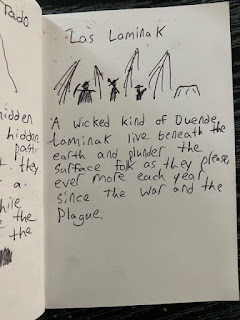 Tado
hidden
hidden
past.
they
a
hile
the
the
Las Laminak
A wicked kind of Duende,
Laminak live beneath the
earth and plunder the
surface folk as they please,
ever more each year
since the War and the
Plague.